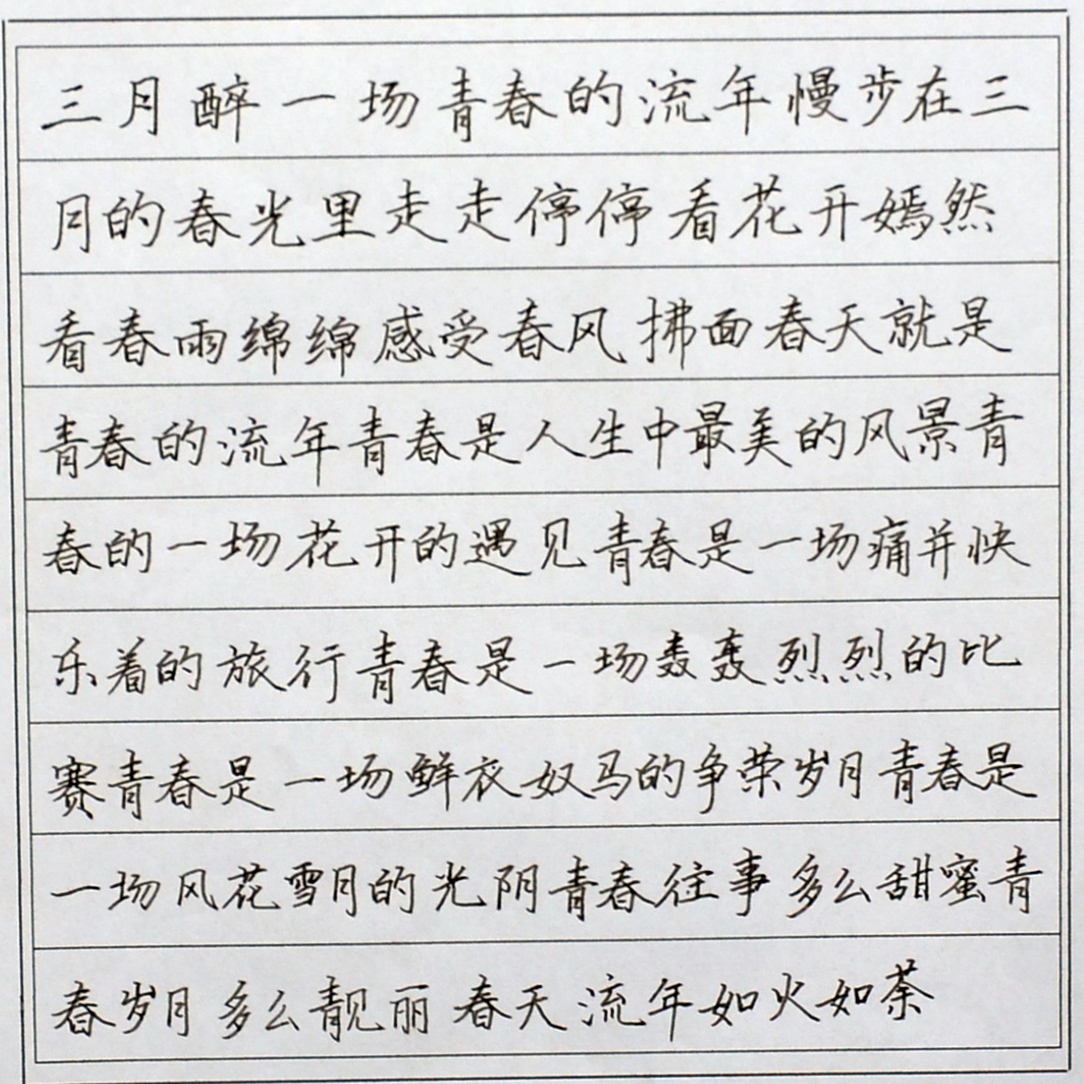 三月醉一场青春的流年慢步在三
月的春光里走走停停看花开嫣然
看春雨绵绵感受春风拂面春天就是
青春的流年青春是人生中最美的风景青
春的一场花开的遇见青春是一场痛并快
乐着的旅行青春是一场轰轰烈烈的比
赛青春是一场鲜衣奴马的争荣岁月青春是
一场风花雪月的光阴青春往事多么甜蜜青
春岁月多么靓丽春天流年如火如荼